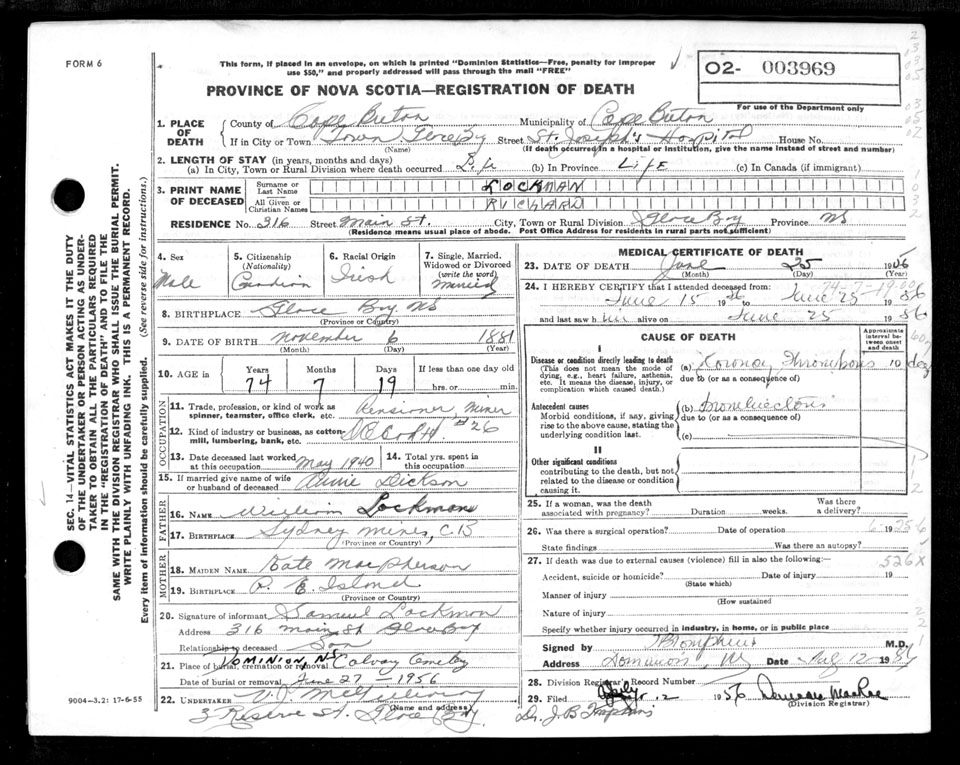 FORM 6
This form, if placed in an envelope, on which is printed "Dominion Statistics—Free, penalty for improper
use $50," and properly addressed will pass through the mail "FREE"
O2- 003969
For use of the Department only
PROVINCE OF NOVA SCOTIA—REGISTRATION OF DEATH
1. PLACE OF DEATH County of Cape Breton Municipality of Cape Breton
If in City or Town Town Glace Bay Street St. Joseph's Hospital House No.
(Name) (If death occurred in a hospital or institution, give the name instead of street and number)
2. LENGTH OF STAY (in years, months and days)
(a) In City, Town or Rural Division where death occurred Life (b) in Province LIFE (c) In Canada (if immigrant)
3. PRINT NAME OF DECEASED Surname or Last Name LOCKMAN
All Given or Christian Names RICHARD
RESIDENCE No. 316 Street Main St. City, Town or Rural Division Glace Bay Province NS
(Residence means usual place of abode. Post Office Address for residents in rural parts not sufficient)
4. Sex Male
5. Citizenship (Nationality) Canadian
6. Racial Origin Irish
7. Single, Married, Widowed or Divorced (write the word) Married
8. BIRTHPLACE Glace Bay, NS
(Province or Country)
9. DATE OF BIRTH November 6 1881
(Month) (Day) (Year)
10. AGE in Years 74 Months 7 Days 19 If less than one day old hrs. or min.
OCCUPATION
11. Trade, profession, or kind of work as spinner, teamster, office clerk, etc. Pensioner, Miner
12. Kind of industry or business, as cotton-mill, lumbering, bank, etc. #26
13. Date deceased last worked at this occupation May 1940
14. Total yrs. spent in this occupation
15. If married give name of wife or husband of deceased Annie Dickson
FATHER
16. NAME William Lockman
17. BIRTHPLACE Sydney Mines, C.B
(Province or Country)
MOTHER
18. MAIDEN NAME Kate MacPherson
19. BIRTHPLACE P. E. Island
(Province or Country)
20. Signature of informant Samuel Lockman
Address 316 Main St Glace Bay
Relationship to deceased Son
21. Place of burial, cremation or removal DOMINION, NS Calvary Cemetery
Date of burial or removal June 27 - 1956
22. UNDERTAKER V. J. McGillivray
(Name and address)
3 Reserve St. Glace Bay
9004-3.2: 17-6-55
MEDICAL CERTIFICATE OF DEATH
23. DATE OF DEATH June 25 1956
(Month) (Day) (Year)
24. I HEREBY CERTIFY that I attended deceased from:
June 15 1956 to June 25 1956
and last saw him alive on June 25 1956
CAUSE OF DEATH
Approximate interval between onset and death
I
Disease or condition directly leading to death
(This does not mean the mode of dying, e.g., heart failure, asthenia, etc. It means the disease, injury, or complication which caused death.)
(a) Coronary Thrombosis 10 days
due to (or as a consequence of)
Antecedent causes
Morbid conditions, if any, giving rise to the above cause, stating the underlying condition last.
(b) Bronchiectasis
due to (or as a consequence of)
(c)
II
Other significant conditions
contributing to the death, but not related to the disease or condition causing it.
25. If a woman, was the death associated with pregnancy? Duration weeks. Was there a delivery?
26. Was there a surgical operation? Date of operation 19
State findings Was there an autopsy?
27. If death was due to external causes (violence) fill in also the following:— 526X
Accident, suicide or homicide? Date of injury 19
(State which)
Manner of injury
(How sustained)
Nature of injury
Specify whether injury occurred in industry, in home, or in public place
Signed by JB Tompkins M.D.
Address Dominion, NS Date July 12 1956
28. Division Registrar's Record Number
29. Filed July 12 1956
(Division Registrar)
Dr. J. B Tompkins
SEC. 14—VITAL STATISTICS ACT MAKES IT THE DUTY
OF THE UNDERTAKER OR PERSON ACTING AS UNDER-
TAKER TO OBTAIN ALL THE PARTICULARS REQUIRED
IN THE "REGISTRATION OF DEATH" AND TO FILE THE
SAME WITH THE DIVISION REGISTRAR WHO SHALL ISSUE THE BURIAL PERMIT.
WRITE PLAINLY WITH UNFADING INK. THIS IS A PERMANENT RECORD.
Every item of information should be carefully supplied. (See reverse side for instructions.)